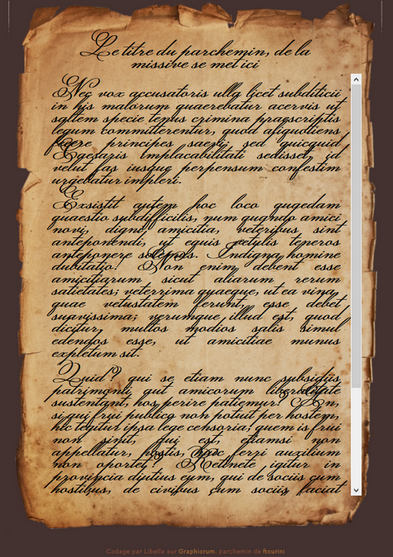 Le titre du parchemin, de la
missive se met ici
Nec vox accusatoris ulla licet subditicii
in his malorum quaerebatur acervis ut
saltem specie tenus crimina praescriptis
legum committerentur, quod aliquotiens
fecere principes saevi: sed quicquid
Caesaris implacabilitati sedisset, id
velut fas iusque perpensum confestim
urgebatur impleri.
Exsistit autem hoc loco quaedam
quaestio subdifficilis, num quando amici
novi, digni amicitia, veteribus sint
anteponendi, ut equis vetulis teneros
anteponere solemus. Indigna homine
dubitatio! Non enim debent esse
amicitiarum sicut aliarum rerum
satietates; veterrima quaeque, ut ea vina,
quae vetustatem ferunt, esse debet
suavissima; verumque illud est, quod
dicitur, multos modios salis simul
edendos esse, ut amicitiae munus
expletum sit.
Quid? qui se etiam nunc subsidiis
patrimonii aut amicorum liberalitate
sustentant, hos perire patiemur? An,
si qui frui publico non potuit per hostem,
hic tegitur ipsa lege censoria; quem is frui
non sinit, qui est, etiamsi non
appellatur, hostis, huic ferri auxilium
non oportet? Retinete igitur in
provincia diutius eum, qui de sociis cum
hostibus, de civibus cum sociis faciat
Codage par Libella sur Graphiorum, parchemin de